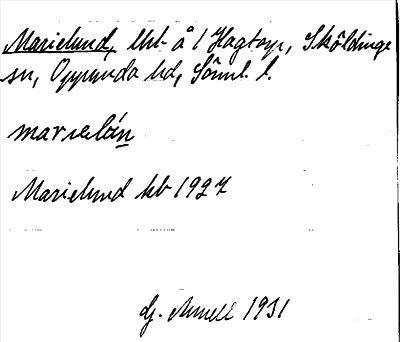 Marielund, lht å 1 Hagtorp, Sköldinge
sn, Oppunda hd, Söml. l.
marielún
Marielund kb 1927
G. 1931